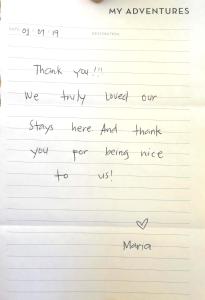 MY ADVENTURES
DATE 03 07 19 DESTINATION
Thank you!!!
We truly loved our
Stays here And thank
you for being nice
to us!
Maria